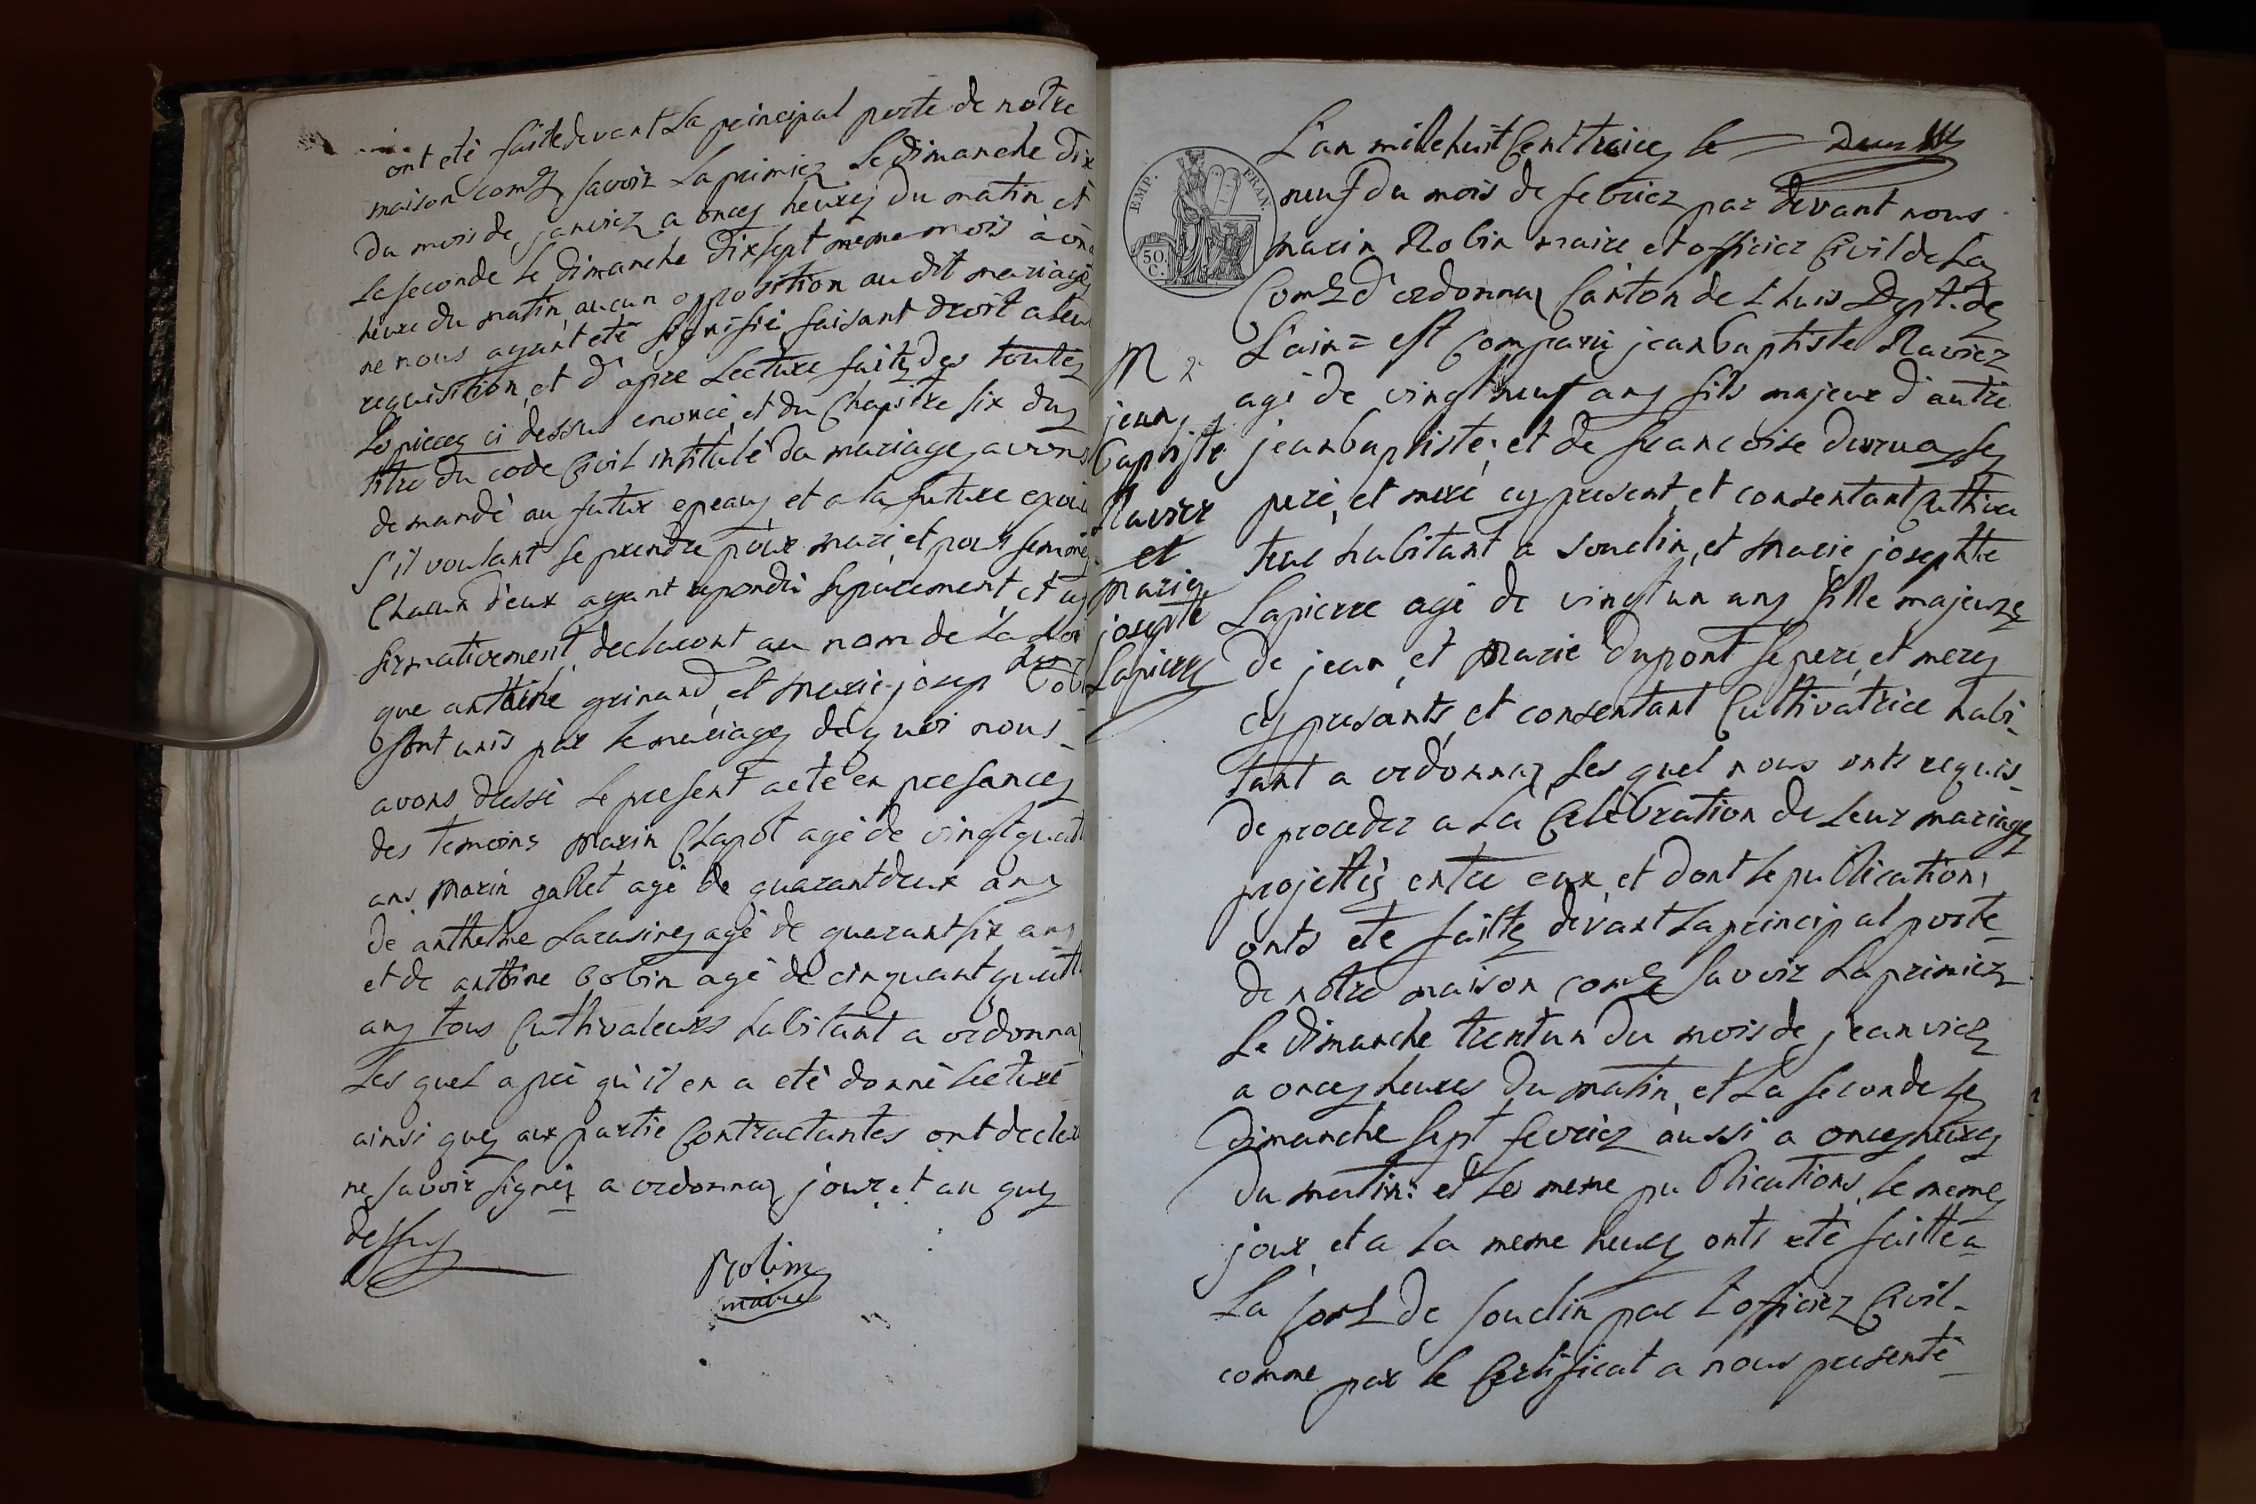 ont eté faitedevant La principal porte de notre
maison comᵉ savoir La primier Le Dimanche dix
Du mois de janvier a onces heures du matin et
La seconde Le Dimanche Dixsept meme mois à onz
heure du matin, aucun opposition au dit mariage
ne nous ayant eté signifié faisant droit a leur
requisition, et d'apre Lecture faite des toutes
Le pieces ci dessus enoncé et du Chapitre six du
titre du code Civil intitulé du mariage, avons
demandé au futur epeaux et a la future
s'il voulant se prendre pour mari et pour femme
Chacun d'eux ayant repondu separement et af
firmativement, declaront au nom de La Loi
que antoine grinand et Marie josep Bobi
sont unis par le mariage de quoi nous
avons dressé Le present acte en presances
des temoins Marin Chapot agé de vingt quat
ans Marin gallet agé de quarant deux ans
de anthelme Larasine agé de quarant six ans
et de antoine bobin agé de cinquant quatt
ans tous Cultivateurs habitant a ordonna
Les quel apré qu'il en a eté donné Lecture
ainsi que aux partie Contractantes ont declar
ne savoir signer a ordonnaz jour et an que
dessus
Robin
maire
EMP. FRAN.
50. C.
L'an mille huit Cent treize le
neuf du mois de fevrier par devant nous
Marin Robin maire et officier Civil de La
Comᵉ d'ordonnaz Canton de Lhuis Dept. de
L'ain = est Comparu jeanbaptiste Ravier
agé de vingt neuf ans fils majeur d'autre
jeanbaptiste, et de francoise
peré, et meré cy present et consentant Cultiva
teur habitant a Souclin, et Marie josephte
Lapierre agé de vingt un ans fille majeure
de jean, et Marie Dupont se peré et mere
cy presants et consentant Cultivatrice habi
tant a ordonnaz, Les quel nous onts requis
de proceder a La Celebration de Leur mariage
projettés entre eux, et dont Le publications
onts eté faitte devant La principal porte
de notre maison comᵉ savoir La primier
Le Dimanche trentun Du mois de jeanvier
a onces heures du matin et La seconde Le
Dimanche sept fevrier aussi a onces heures
du matin: et Les meme publications, Le meme
jour et a La meme heure onts eté faitte a
La Comᵉ de Souclin par L'officier Civil
comme par Le Certificat a nous presenté
M
jean
baptiste
Ravier
et
Marie
josepte
Lapierre